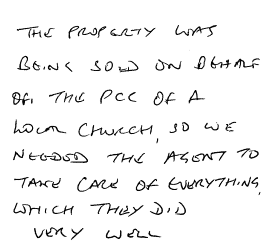 THE PROPERTY WAS
BEING SOLD ON BEHALF
OF, THE PCC OF A
LOCAL CHURCH, SO WE
NEEDED THE AGENT TO
TAKE CARE OF EVERYTHING,
WHICH THEY DID
VERY WELL